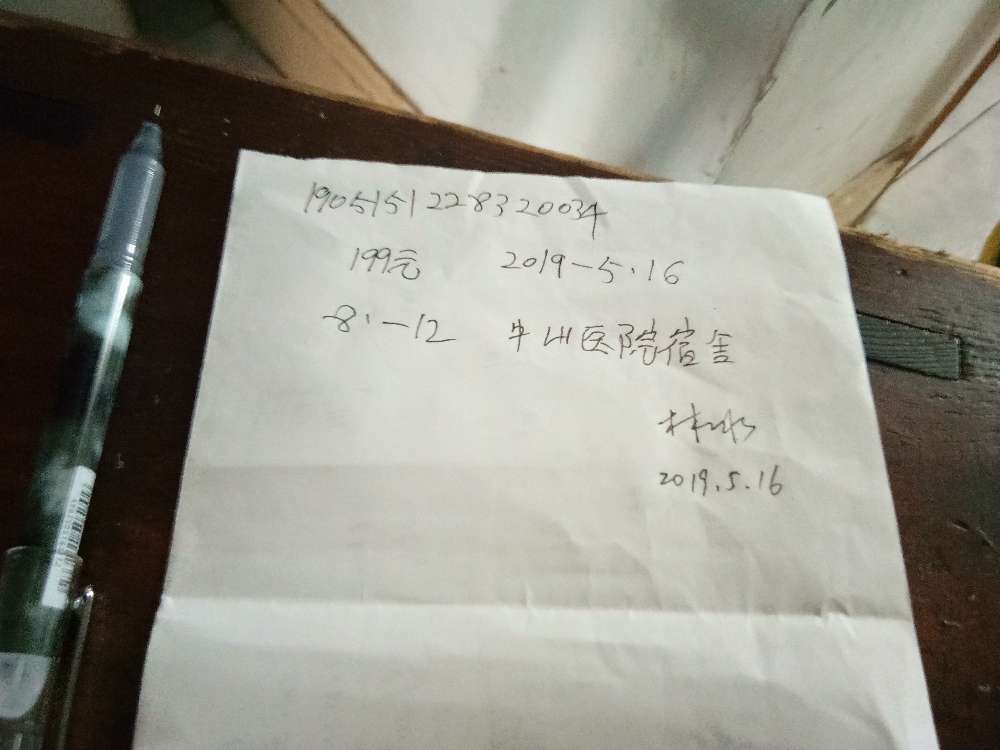 1905151228320034
199元 2019-5.16
8:-12 牛山医院宿舍
林冰
2019.5.16